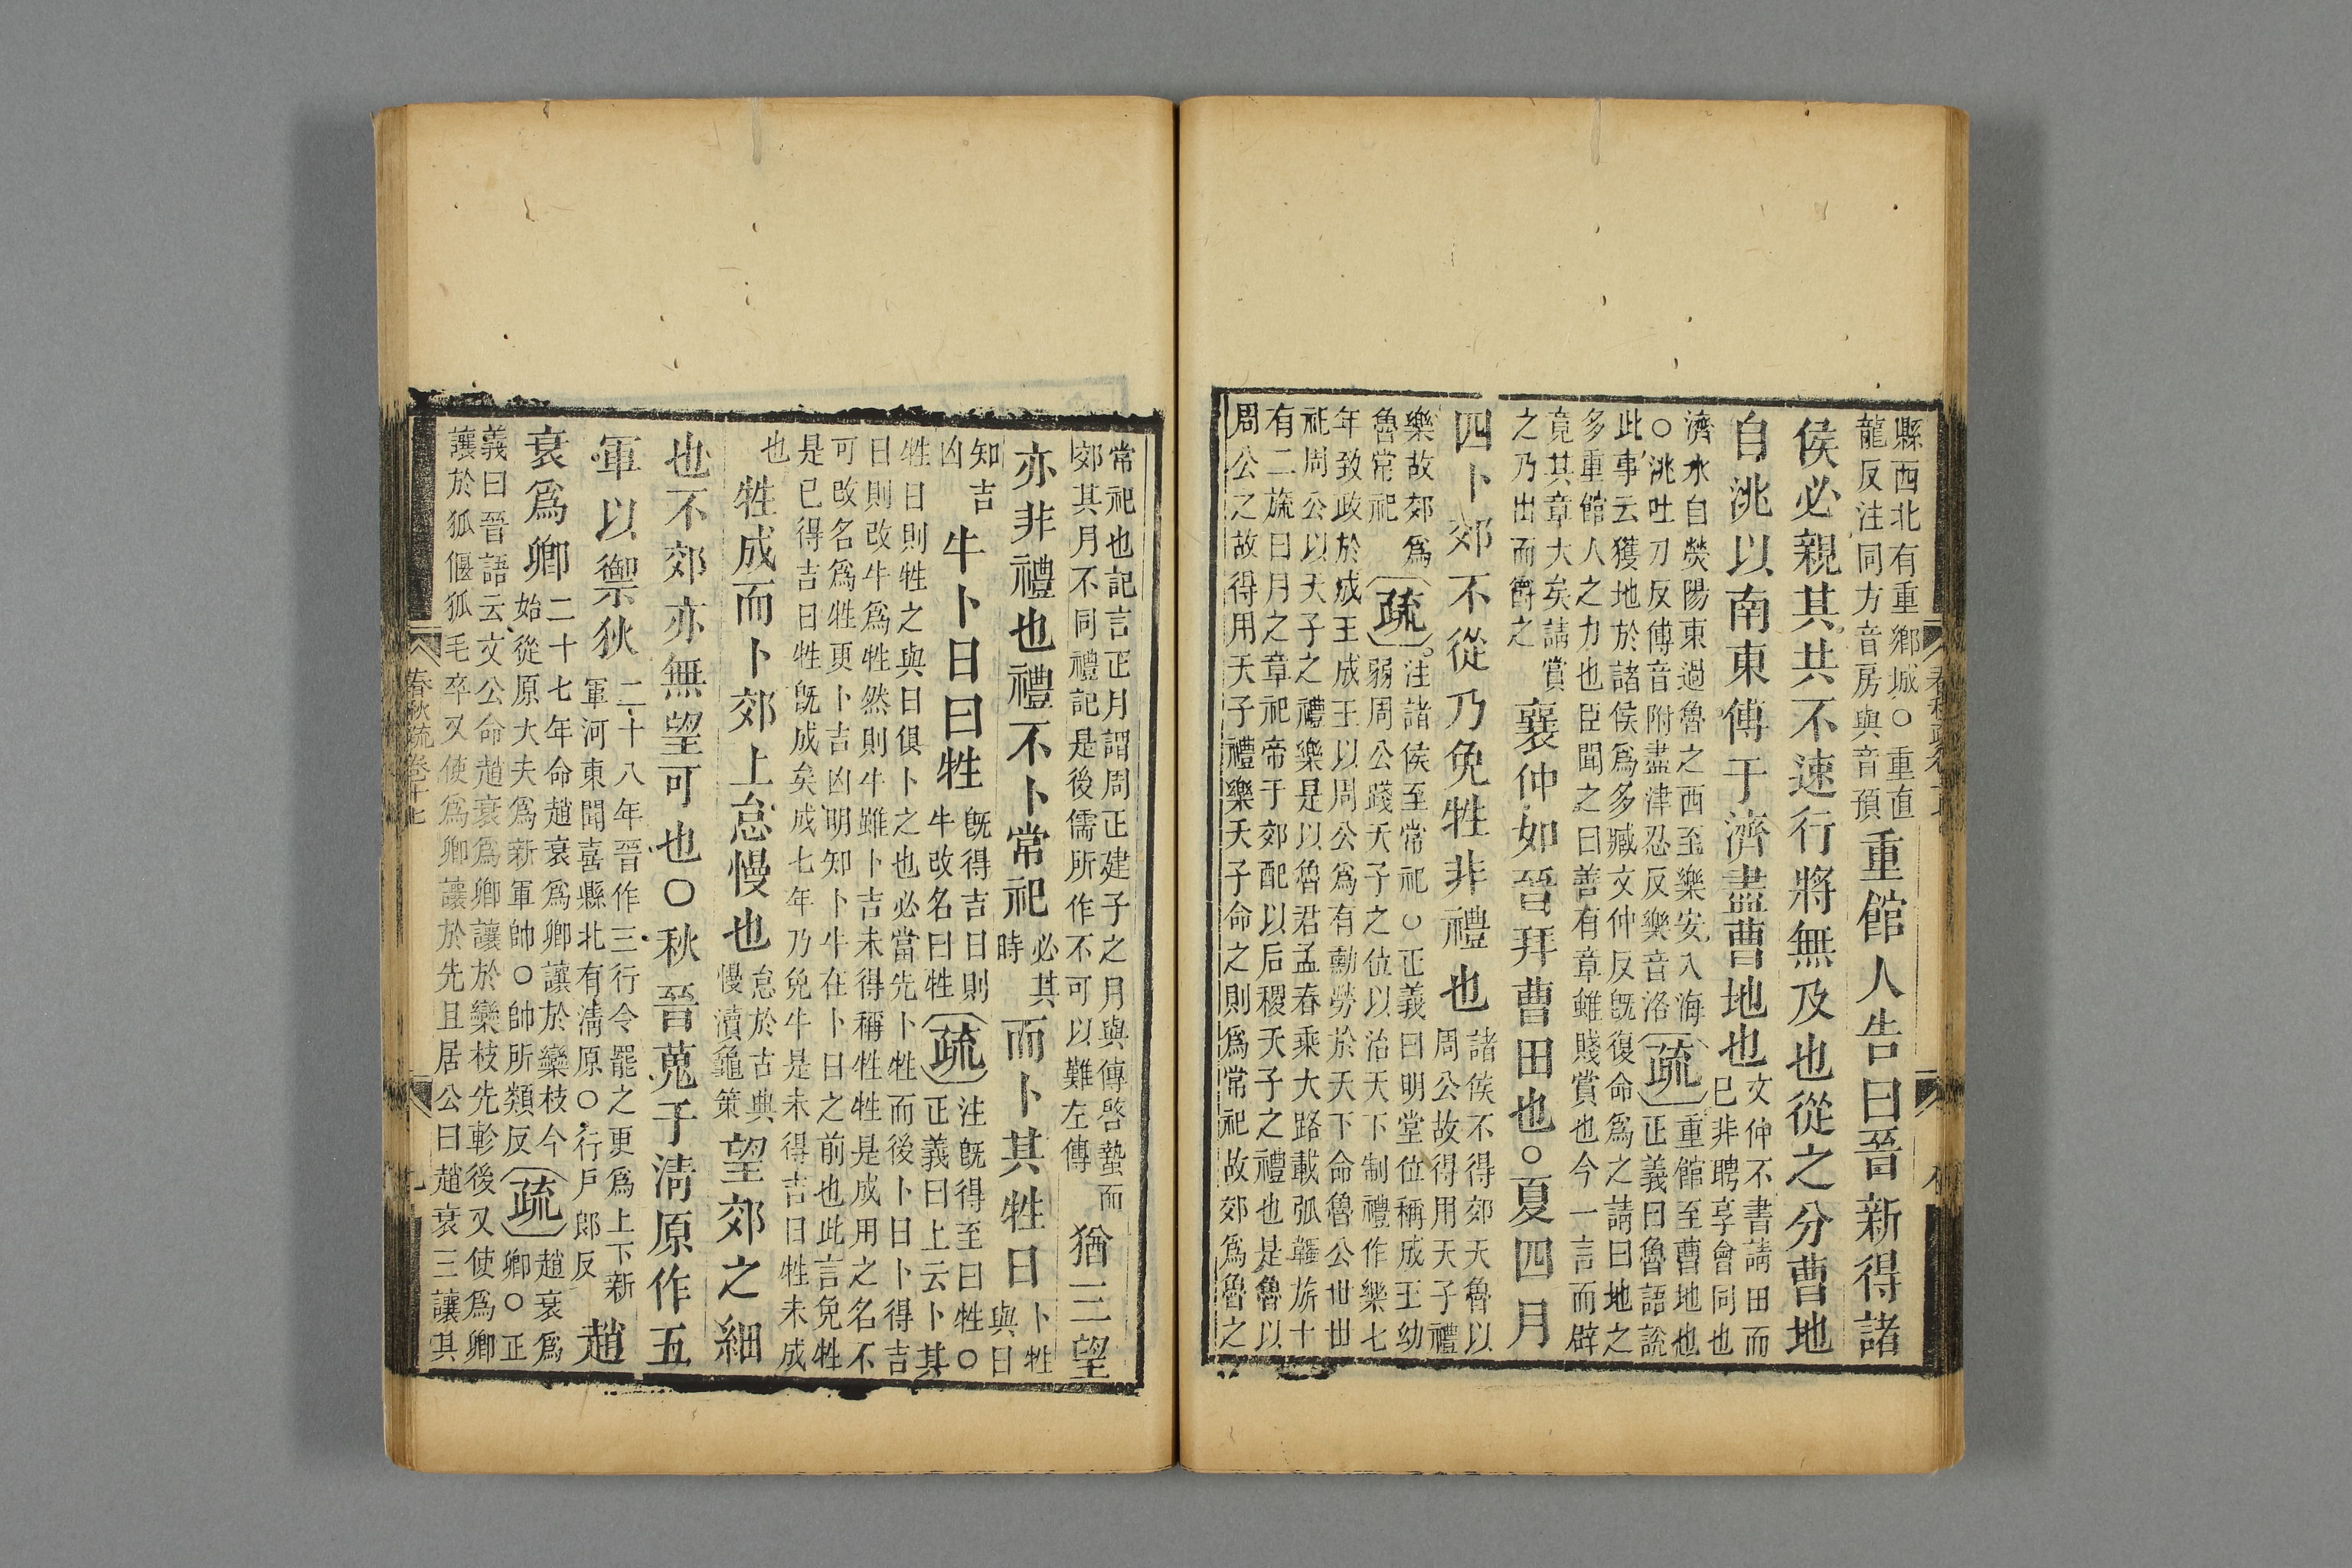 縣西北有重鄉城○重直
龍反注同方音房與音預
重館人告曰晉新得諸
侯必親其共不速行將無及也從之分曹地
自洮以南東傅于濟盡曹地也
文仲不書請田而
已非聘享會同也
濟水自熒陽東過魯之西至樂安入海
○洮吐刀反傅音附盡津忍反樂音洛
疏
重館至曹地也
正義曰魯語說
此事云獲地於諸侯爲多臧文仲反既復命爲之請曰地之
多重館人之力也臣聞之曰善有章雖賤賞也今一言而辟
竟其章大矣請賞
之乃出而爵之
襄仲如晉拜曹田也○夏四月
四卜郊不從乃免牲非禮也
諸侯不得郊天魯以
周公故得用天子禮
樂故郊爲
魯常祀
疏
注諸侯至常祀○正義曰明堂位稱成王幼
弱周公踐天子之位以治天下制禮作樂七
年致政於成王成王以周公爲有勳勞於天下命魯公世世
祀周公以天子之禮樂是以魯君孟春乘大路載弧韣旂十
有二旒日月之章祀帝于郊配以后稷天子之禮也是魯以
周公之故得用天子禮樂天子命之則爲常祀故郊爲魯之
常祀也記言正月謂周正建子之月與傳啓蟄而
郊其月不同禮記是後儒所作不可以難左傳
猶三望
亦非禮也禮不卜常祀
必其
時
而卜其牲日
卜牲
與日
知吉
凶
牛卜日曰牲
既得吉日則
牛改名曰牲
疏
注既得至曰牲○
正義曰上云卜其
牲日則牲之與日俱卜之也必當先卜牲而後卜日卜得吉
日則改牛爲牲然則牛雖卜吉未得稱牲牲是成用之名不
可改名爲牲更卜吉凶明知卜牛在卜日之前也此言免牲
是已得吉日牲既成矣成七年乃免牛是未得吉日牲未成
也
牲成而卜郊上怠慢也
怠於古典
慢瀆龜策
望郊之細
也不郊亦無望可也○秋晉蒐于清原作五
軍以禦狄
二十八年晉作三行今罷之更爲上下新
軍河東聞喜縣北有清原○行戶郎反
趙
衰爲卿
二十七年命趙衰爲卿讓於欒枝今
始從原大夫爲新軍帥○帥所類反
疏
趙衰爲
卿○正
義曰晉語云文公命趙衰爲卿讓於欒枝先軫後又使爲卿
讓於狐偃狐毛卒又使爲卿讓於先且居公曰趙衰三讓其
春秋疏卷十七